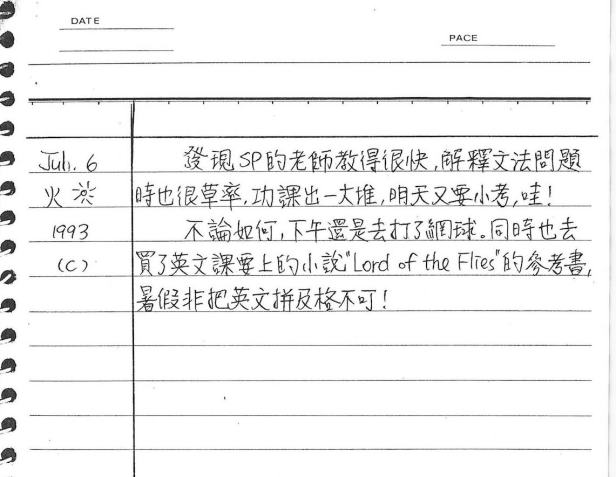 DATE
PACE
Jul. 6 發現SP的老師教得很快,解釋文法問題
火 時也很草率,功課出一大堆,明天又要小考,哇!
1993 不論如何,下午還是去打了網球。同時也去
(C) 買了英文課要上的小說"Lord of the Flies"的參考書,
暑假非把英文拼及格不可!